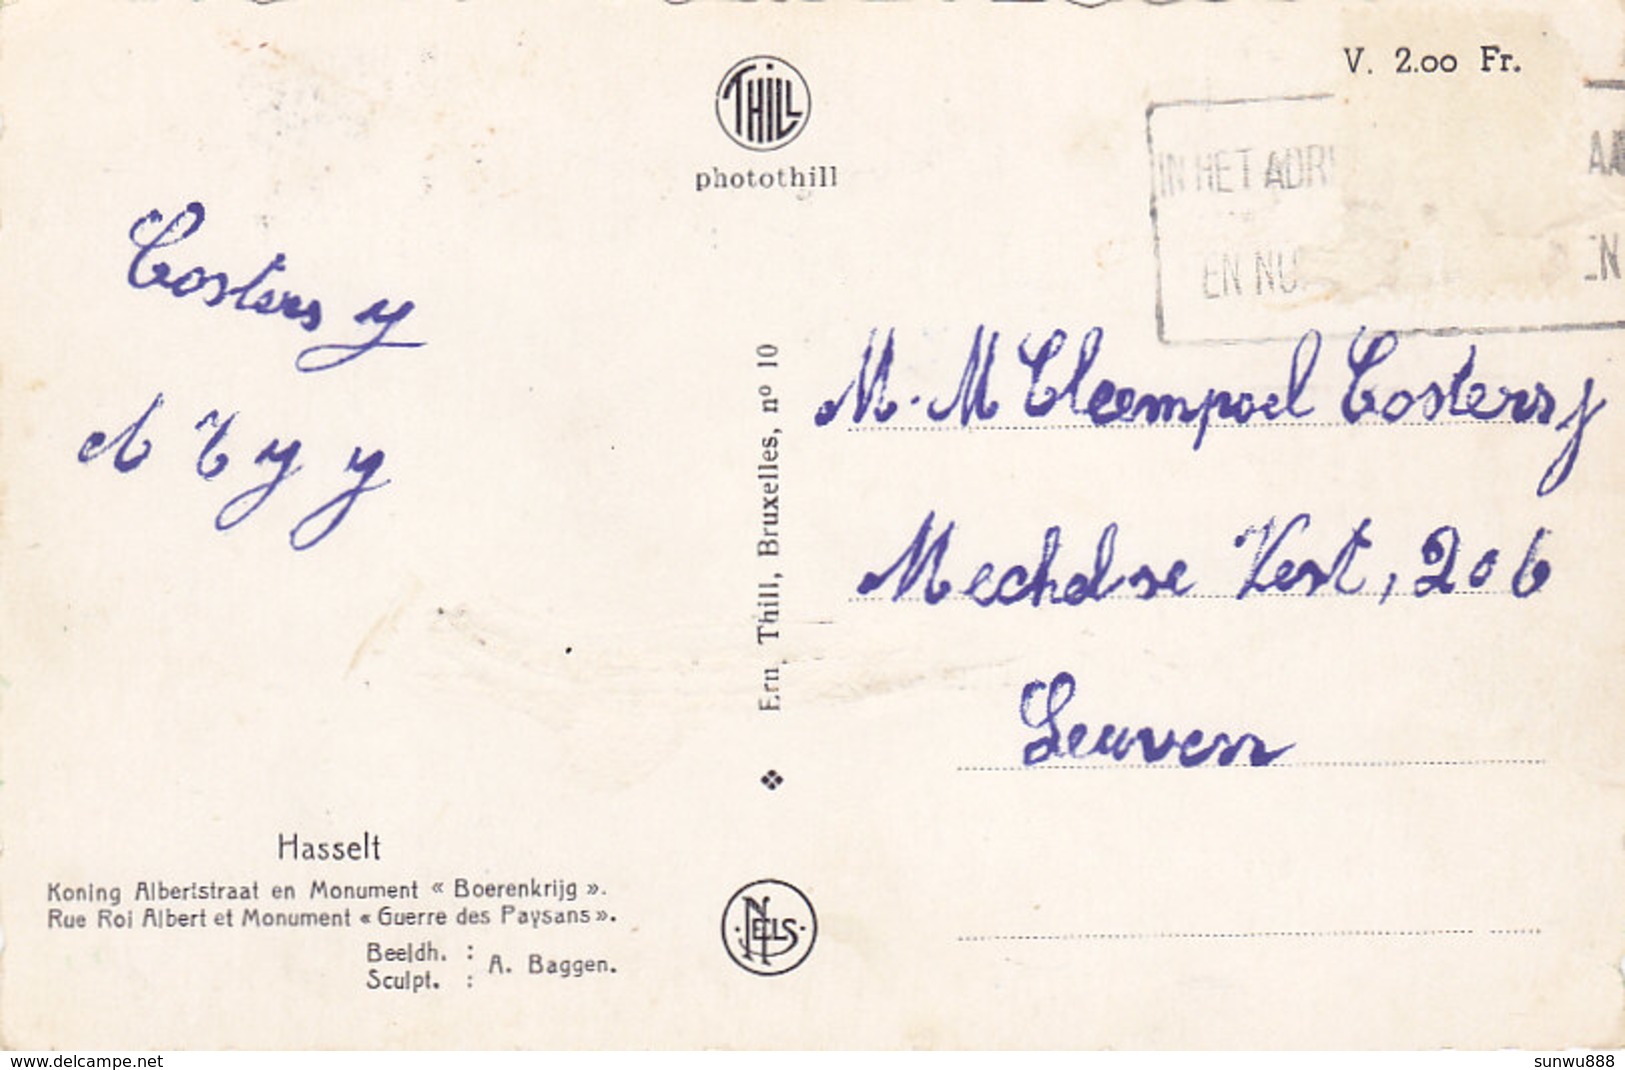 V. 2.00 Fr.
THILL
photothill
IN HET ADR
AA
EN NU
EN
Costers y
M. M Cleempoel Costers y
Mechelse Vest, 206
Leuven
Ern. Thill, Bruxelles, nº 10
Hasselt
Koning Albertstraat en Monument « Boerenkrijg ».
Rue Roi Albert et Monument « Guerre des Paysans ».
Beeldh. :
Sculpt. :
A. Baggen.
NELS
www.delcampe.net
sunwu888